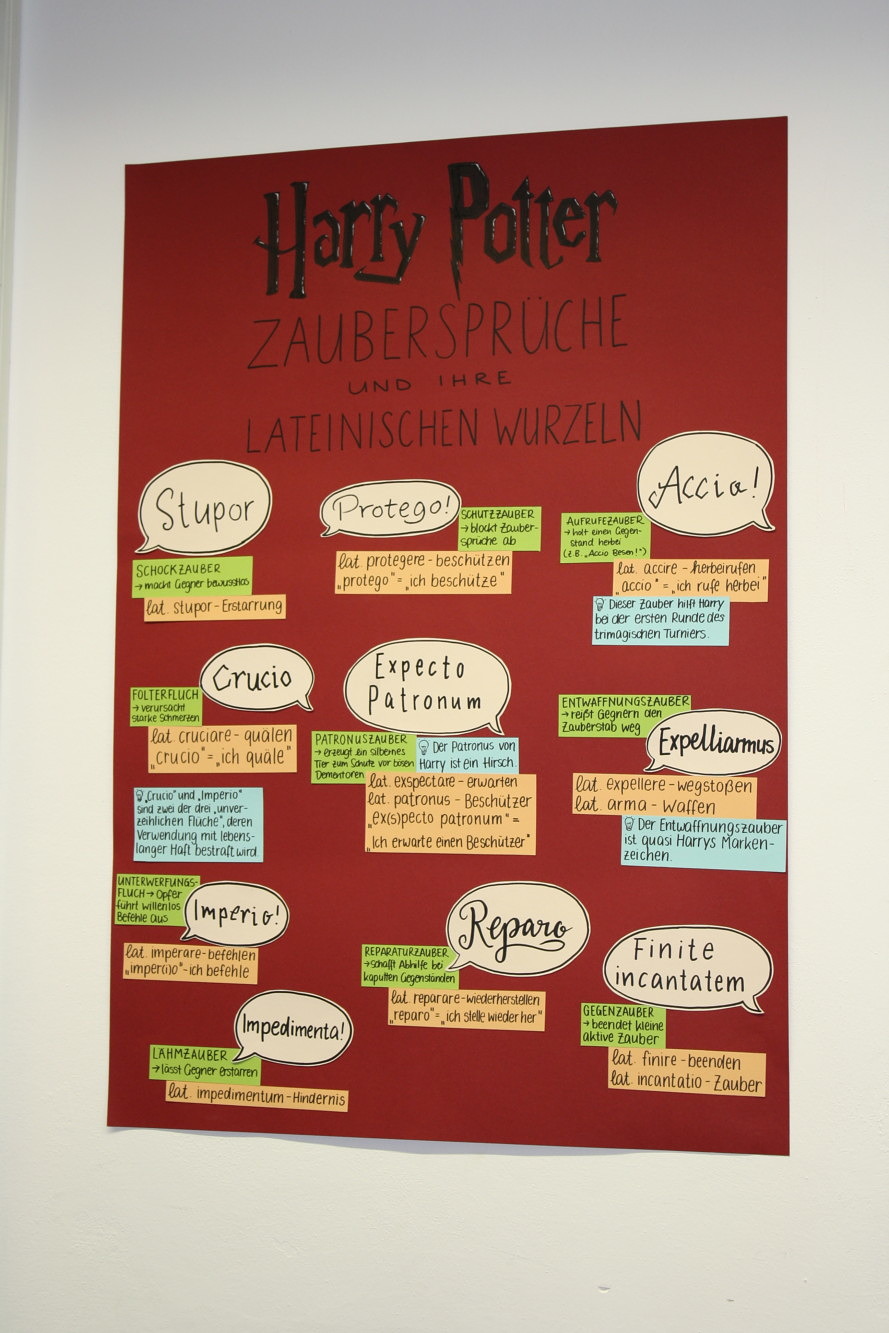 Harry Potter
ZAUBERSPRÜCHE
UND IHRE
LATEINISCHEN WURZELN
Stupor
SCHOCKZAUBER
→ macht Gegner bewusstlos
lat. stupor - Erstarrung
Protego!
SCHUTZZAUBER
→ blockt Zauber-
sprüche ab
lat. protegere - beschützen
„protego" = „ich beschütze"
Accio!
AUFRUFEZAUBER
→ holt einen Gegen-
stand herbei
(z.B. „Accio Besen!")
lat. accire - herbeirufen
„accio" = „ich rufe herbei"
Dieser Zauber hilft Harry
bei der ersten Runde des
trimagischen Turniers.
Crucio
FOLTERFLUCH
→ verursacht
starke Schmerzen
lat. cruciare - quälen
„crucio" = „ich quäle"
„Crucio" und „Imperio"
sind zwei der drei „unver-
zeihlichen Flüche", deren
Verwendung mit lebens-
langer Haft bestraft wird.
Expecto
Patronum
PATRONUSZAUBER
→ erzeugt ein silbernes
Tier zum Schutz vor bösen
Dementoren
Der Patronus von
Harry ist ein Hirsch.
lat. exspectare - erwarten
lat. patronus - Beschützer
„ex(s)pecto patronum" =
„Ich erwarte einen Beschützer"
ENTWAFFNUNGSZAUBER
→ reißt Gegnern den
Zauberstab weg
Expelliarmus
lat. expellere - wegstoßen
lat. arma - Waffen
Der Entwaffnungszauber
ist quasi Harrys Marken-
zeichen.
UNTERWERFUNGS-
FLUCH → Opfer
führt willenlos
Befehle aus
Imperio!
lat. imperare - befehlen
„imper(i)o" - ich befehle
Reparo
REPARATURZAUBER
→ schafft Abhilfe bei
kaputten Gegenständen
lat. reparare - wiederherstellen
„reparo" = „ich stelle wieder her"
Finite
incantatem
GEGENZAUBER
→ beendet kleine
aktive Zauber
lat. finire - beenden
lat. incantatio - Zauber
Impedimenta!
LÄHMZAUBER
→ lässt Gegner erstarren
lat. impedimentum - Hindernis